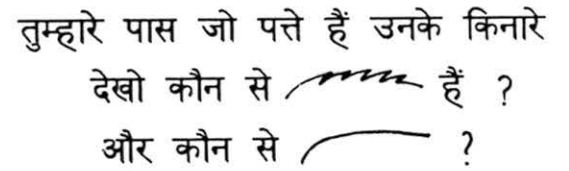 तुम्हारे पास जो पत्ते हैं उनके किनारे
देखो कौन से हैं ?
और कौन से ?